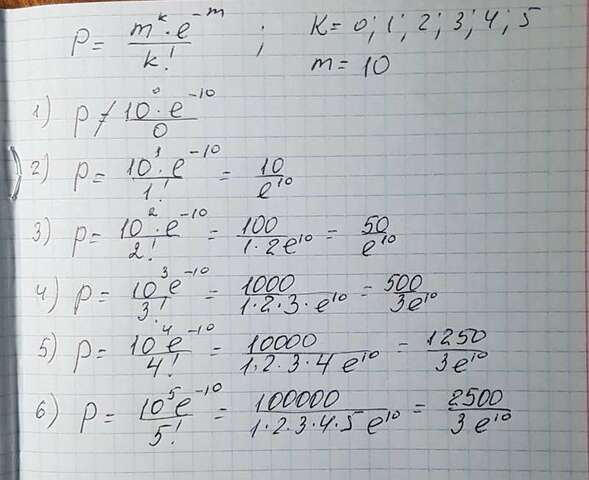 P = m^k · e^-m / k! ; K = 0; 1; 2; 3; 4; 5
m = 10
1) P ≠ 10^0 · e^-10 / 0
2) P = 10^1 · e^-10 / 1! = 10 / e^10
3) P = 10^2 · e^-10 / 2! = 100 / 1·2e^10 = 50 / e^10
4) P = 10^3 e^-10 / 3! = 1000 / 1·2·3·e^10 = 500 / 3e^10
5) P = 10^4 e^-10 / 4! = 10000 / 1·2·3·4 e^10 = 1250 / 3e^10
6) P = 10^5 e^-10 / 5! = 100000 / 1·2·3·4·5 e^10 = 2500 / 3e^10